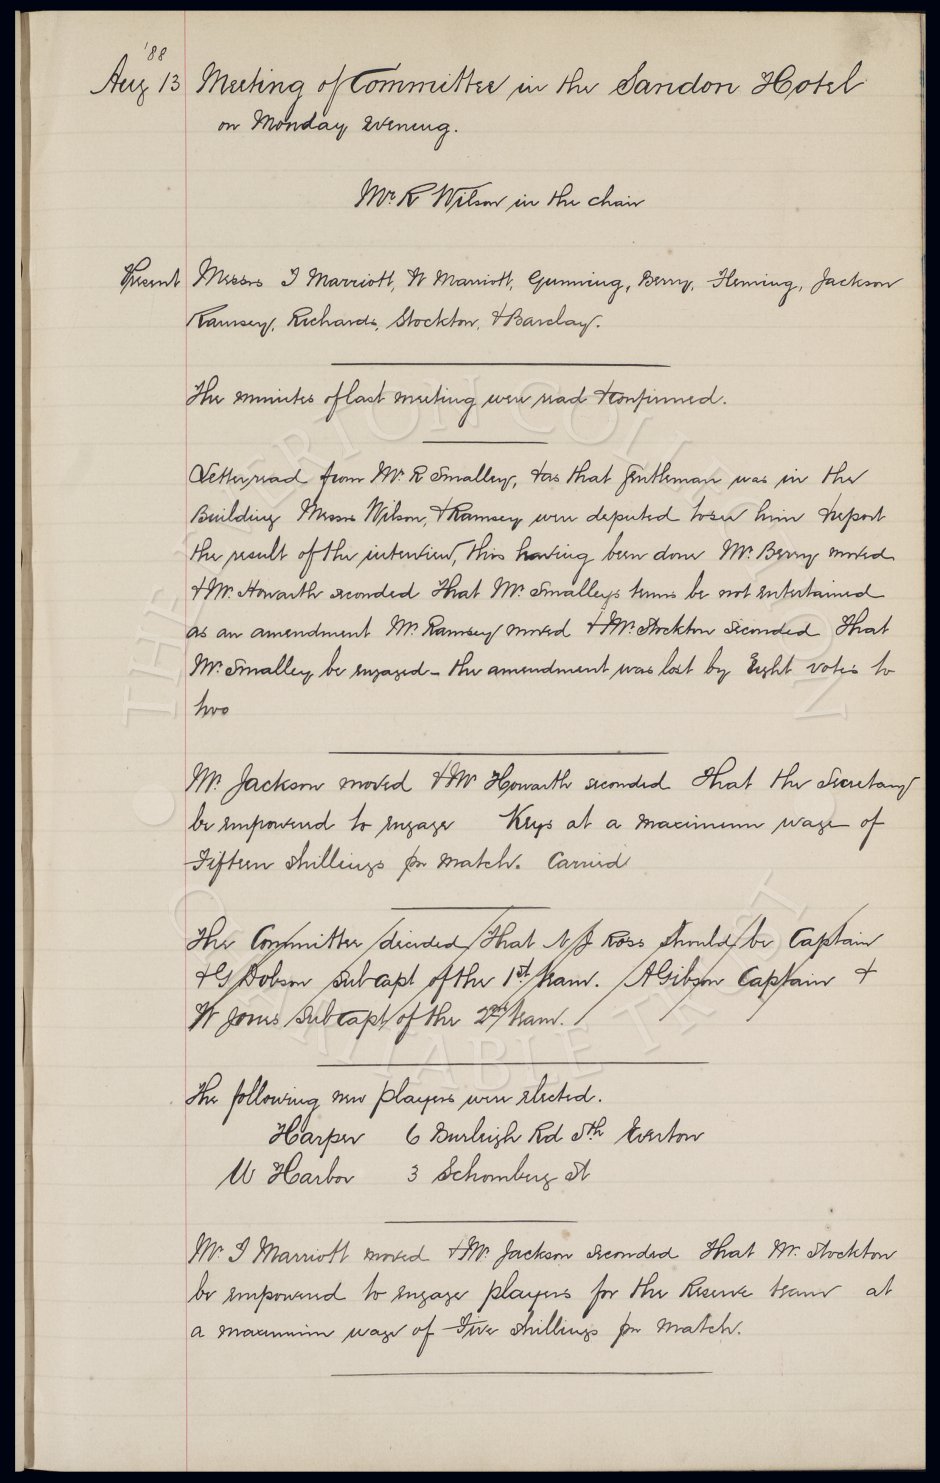 '88
Aug 13 Meeting of Committee in the Sandon Hotel
on Monday evening.
Mr. R Wilson in the chair
Present Messrs J Marriott, W Marriott, Gunning, Berry, Fleming, Jackson
Ramsey, Richards, Stockton, & Barclay.
The minutes of last meeting were read & confirmed.
Letter read from Mr. R Smalley, & as that gentleman was in the
Building Messrs Wilson, & Ramsey were deputed to see him & report
the result of the interview, this having been done Mr. Berry moved
& Mr. Howarth seconded That Mr. Smalleys terms be not entertained
as an amendment Mr. Ramsey moved & Mr. Stockton seconded That
Mr. Smalley be engaged - the amendment was lost by Eight votes to
two
Mr. Jackson moved & Mr Howarth seconded That the Secretary
be empowered to engage Keys at a maximum wage of
Fifteen shillings per match. Carried
The Committee decided That N J Ross should be Captain
& G Dobson Sub capt of the 1st team. A Gibson Captain &
W Jones Sub capt of the 2nd team.
The following new players were elected.
Harper 6 Burleigh Rd Sth Everton
W Harbor 3 Schomberg St
Mr. J Marriott moved & Mr. Jackson seconded That Mr. Stockton
be empowered to engage players for the Reserve team at
a maximum wage of Five shillings per match.
THE EVERTON COLLECTION
CHARITABLE TRUST